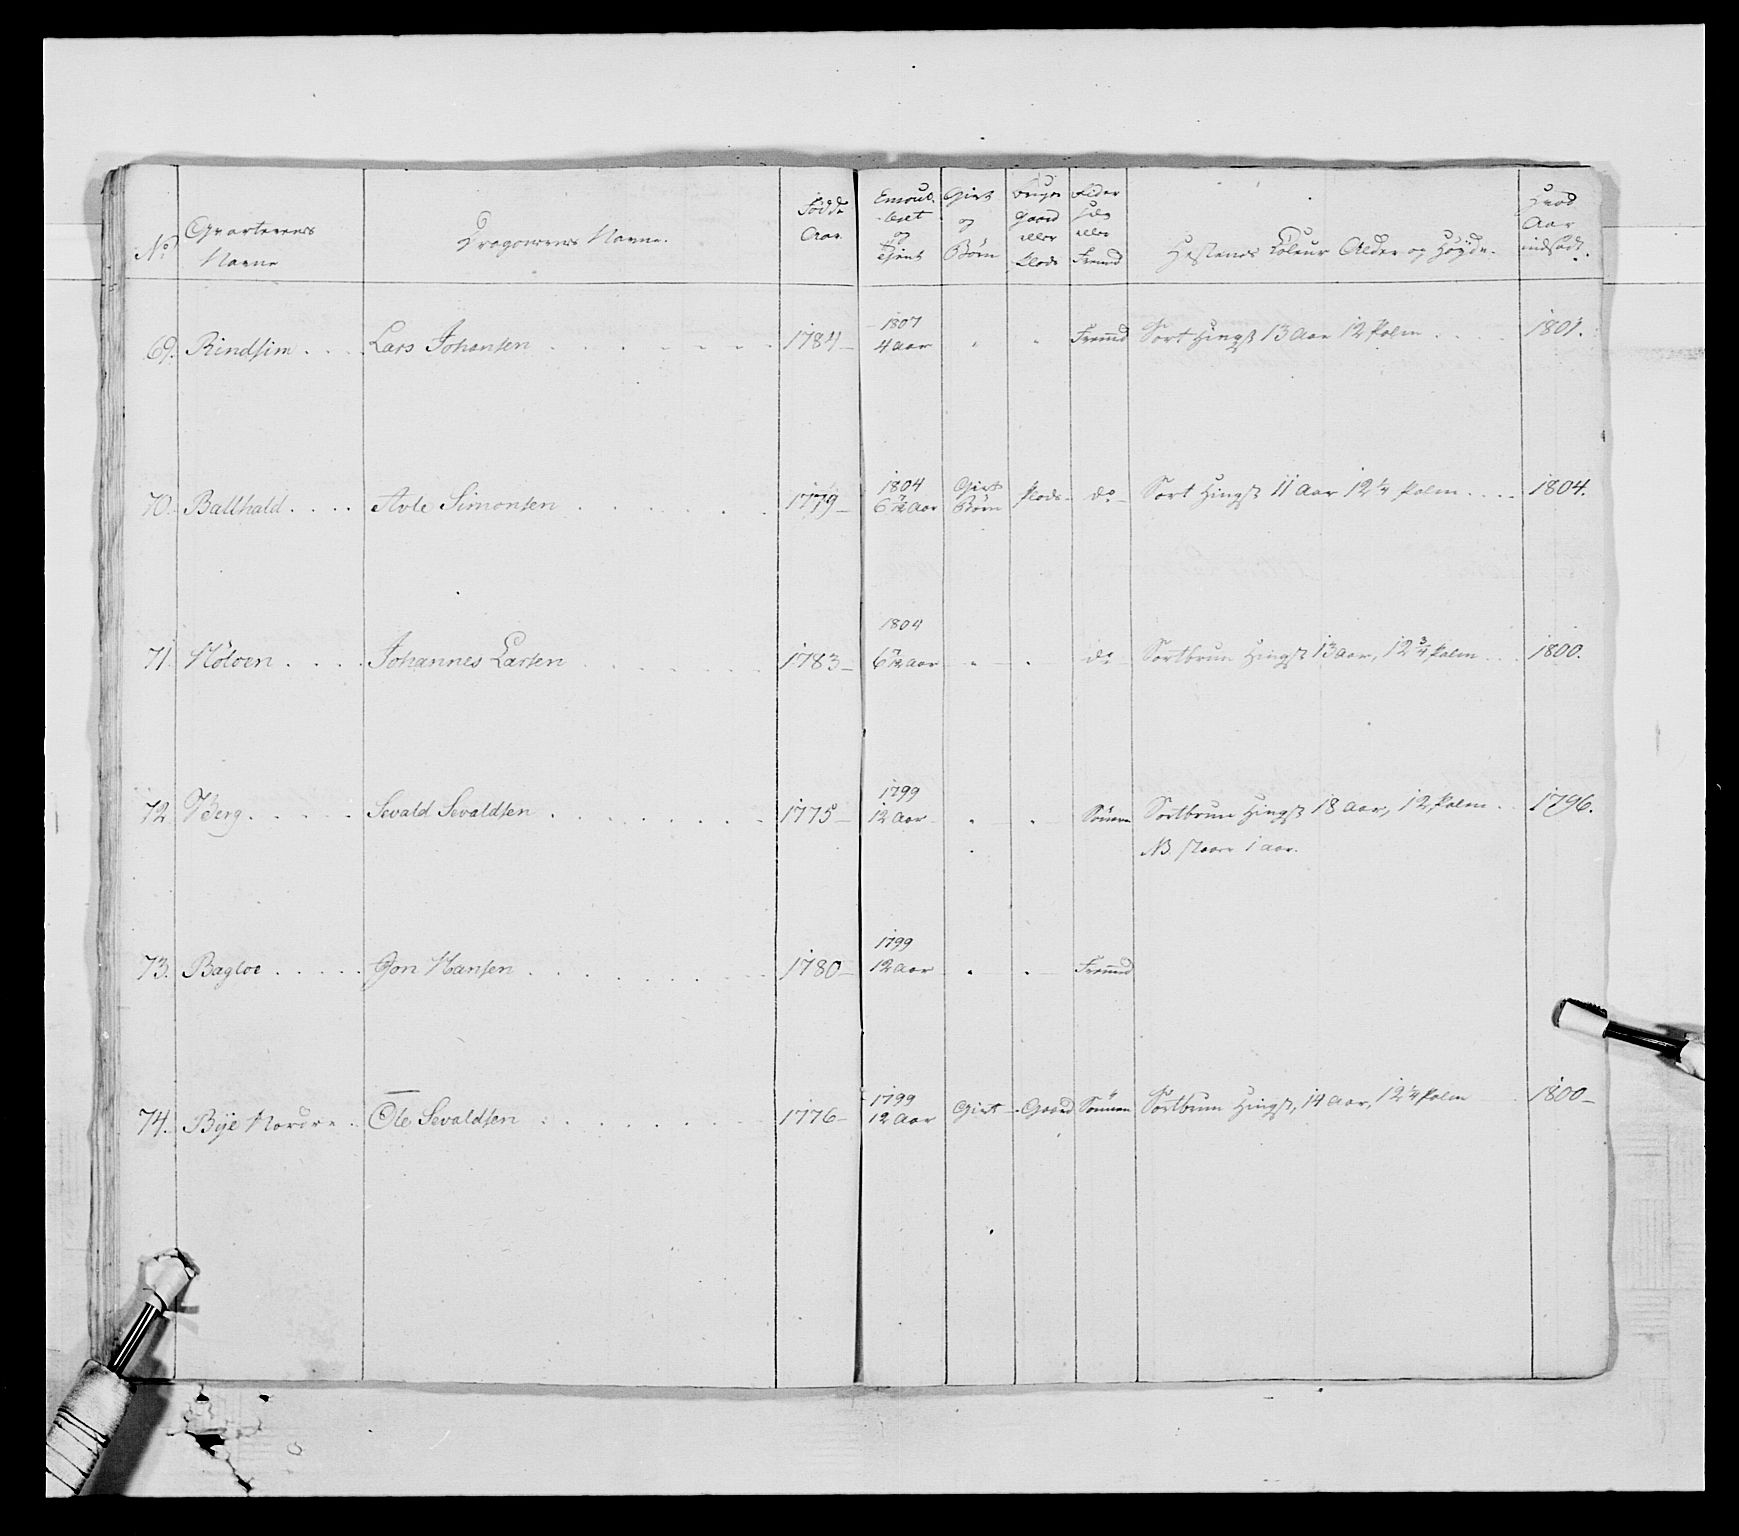 No. Qvarterenes Navne Dragonernes Navne. Fødde Aar. Enroulleret og Tjent Givt og Børn Bruger Gaard eller Plads Eier Søn eller Fremd Hestenes Couleur Alder og Høyde. Hvad Aar indsadt.
69. Rindsim Lars Johansen 1784 1807 4 Aar Fremd Sort Hingst 13 Aar 12 Palm 1801.
70. Balthald Avle Simonsen 1779 1804 6 7/12 Aar Givt Børn Plads do Sort Hingst 11 Aar 12 1/4 Palm 1804.
71. Holoen Johannes Larsen 1783 1804 6 7/12 Aar do Sortbrun Hingst 13 Aar, 12 3/4 Palm 1800.
72 Berg Sevald Sevaldsen 1775 1799 12 Aar Sønnen Sortbrun Hingst 18 Aar, 12 Palm 1796.
NB. staaer 1 Aar.
73. Bagloe Jon Hansen 1780 1799 12 Aar Fremd
74. Bye Nordre Ole Sevaldsen 1776 1799 12 Aar Givt Gaard Sønnen Sortbrun Hingst, 14 Aar, 12 1/4 Palm 1800